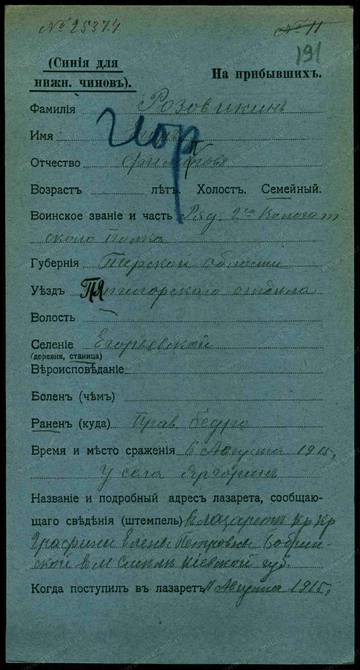 № 25374
191
(Синія для
нижн. чиновъ).
На прибывшихъ.
Фамилія Розовикинъ
Имя
Отчество
Возрастъ лѣтъ. Холостъ. Семейный.
Воинское званіе и часть Ряд. 2го
скаго Полка
Губернія Терской области
Уѣздъ Пятигорскаго отдѣла
Волость
Селеніе Егорьевской
(деревня, станица)
Вѣроисповѣданіе
Боленъ (чѣмъ)
Раненъ (куда) Прав. бедро
Время и мѣсто сраженія 6 Августа 1915,
У села
Названіе и подробный адресъ лазарета, сообщаю-
щаго свѣдѣнія (штемпель) в лазарете Кр. Кр.
Графини Елены Петровны Бобрин-
ской в м. Смела Киевской губ.
Когда поступилъ въ лазаретъ Августа 1915,